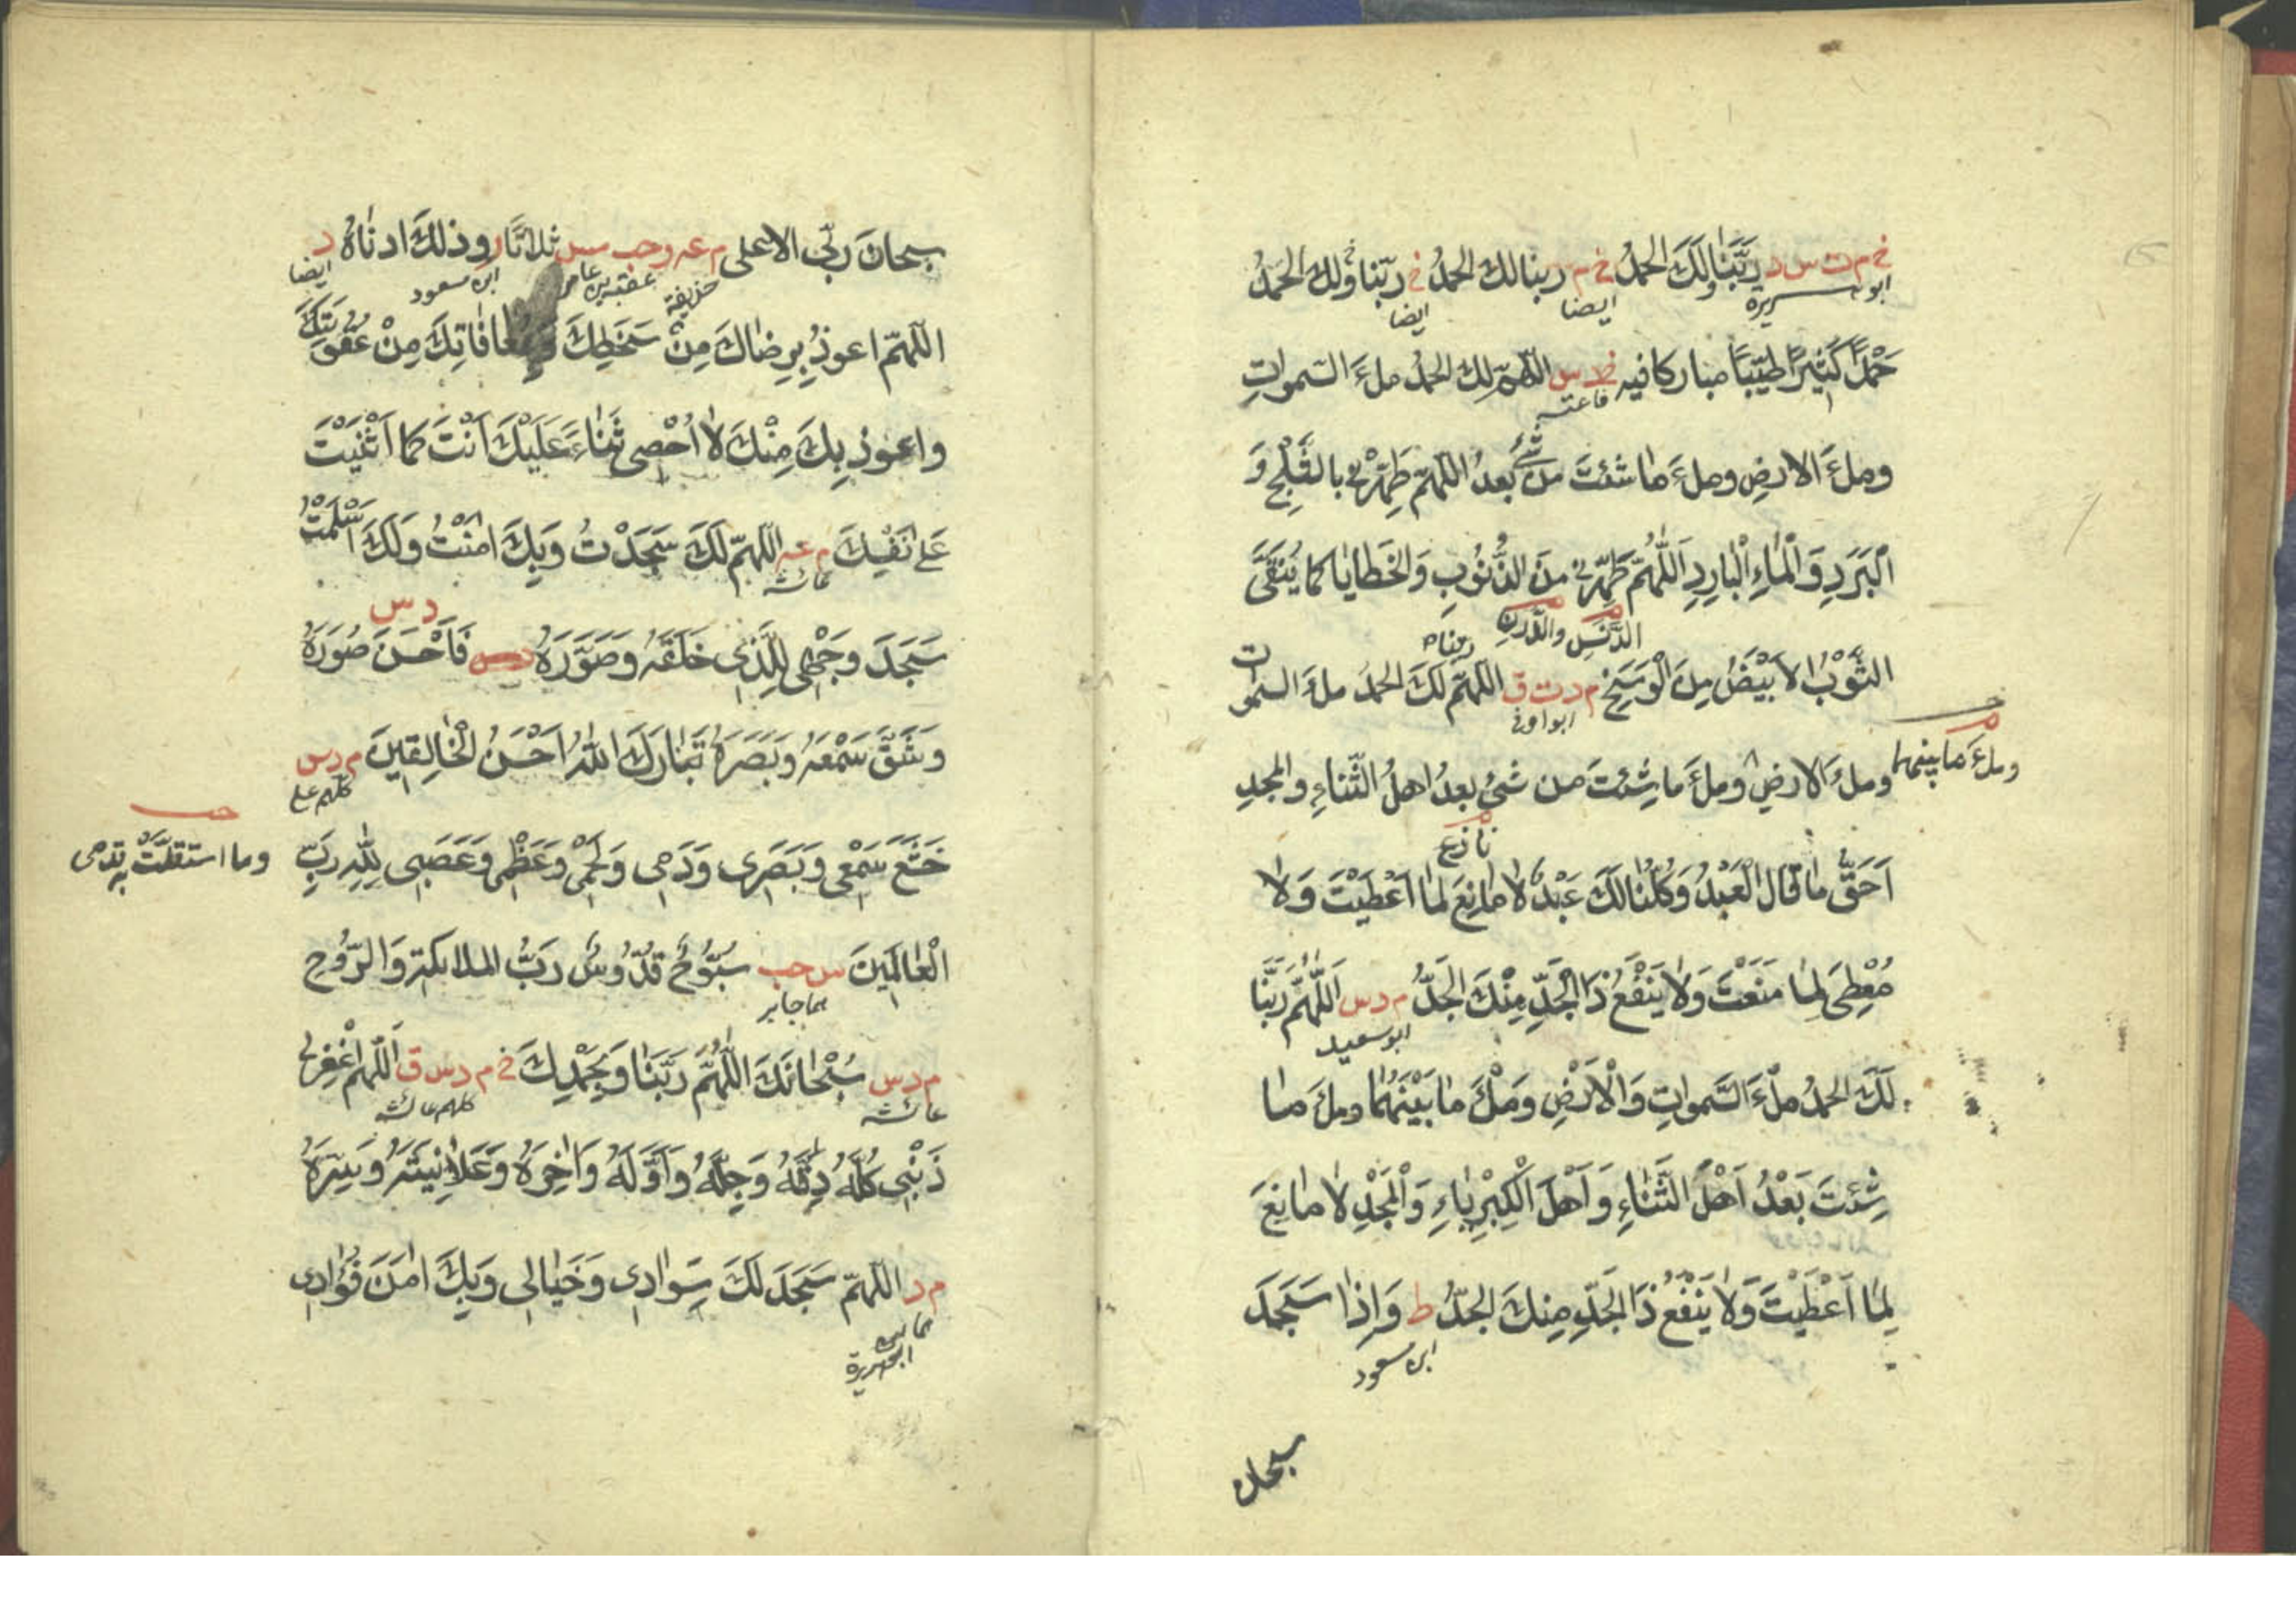 خ م ت س د رَبَّنَا وَلَكَ الحمدُ خ م ربنا لك الحمدُ خ ربّنا ولك الحَمدُ
ابو هريرة ايضا ايضا
حَمْدًا كَثِيرًا طَيِّبًا مباركا فيه خ د س اللهمّ لك الحمدُ ملءَ السموات
رفاعة
وملءَ الارضِ وملءَ ما شئتَ من شَيْءٍ بعدُ اللهمّ طَهِّرْني بالثَّلْجِ وَ
الْبَرَدِ وَالْمَاءِ الْبَارِدِ اَللّٰهُمَّ طَهِّرني مِنَ الذُّنُوبِ وَالْخَطايا كما يُنَقَّى
الدَّنَسِ والدَّرَنِ
ربناه
الثَّوْبُ الاَبْيَضُ مِنَ الْوَسَخِ م د ت ق اللهمّ لكَ الحمدُ ملءَ السموات
ابو اوفى
وملءَ الارضِ وملءَ ما شِئتَ من شئٍ بعدُ اهلُ الثَّناءِ والمجدِ
وملءَ ما بينهما
نازع
اَحَقُّ ما قال الْعَبْدُ وَكُلُّنَا لَكَ عَبْدٌ لا مانِعَ لما اَعْطَيْتَ وَلا
مُعْطِيَ لِما مَنَعْتَ وَلا يَنْفَعُ ذَا الْجَدِّ مِنْكَ الجَدُّ م د س اَللّٰهُمَّ رَبَّنَا
ابو سعيد
لَكَ الحمدُ مِلْءَ السَّمواتِ وَالْاَرْضِ وَمِلْءَ ما بَيْنَهُما وملءَ ما
شِئتَ بَعْدُ اَهْلَ الثَّنَاءِ وَاَهْلَ الْكِبْرِيَاءِ وَالْمَجْدِ لا مانِعَ
لِمَا اَعْطَيْتَ وَلا يَنْفَعُ ذَا الجَدِّ مِنكَ الجدُّ ط وَاِذا سَجَدَ
ابن مسعود
سبحان
سبحانَ ربّي الاعلى م عه ر حب مس ثلاثًا ر وذلكَ ادناهُ د
حذيفة عقبة بن عامر ابن مسعود ايضا
اللهمّ اعوذُ بِرِضاكَ مِنْ سَخَطِكَ وبمعافاتِكَ مِنْ عُقُوبَتِكَ
واعوذ بِكَ مِنْكَ لا اُحْصِي ثَناءً عَلَيْكَ اَنْتَ كما اَثْنَيْتَ
عَلى نَفْسِكَ م عه اللهمّ لَكَ سَجَدْتُ وَبِكَ امَنْتُ وَلَكَ اَسْلَمْتُ
عائشة
د س
سَجَدَ وَجْهِي لِلَّذِي خَلَقَهُ وَصَوَّرَهُ فَاَحْسَنَ صُوَرَهُ
وَشَقَّ سَمْعَهُ وَبَصَرَهُ تَبَارَكَ اللّٰهُ اَحْسَنُ الْخَالِقِينَ م د س
كلهم علي
خَشَعَ سَمْعِي وَبَصَرِي وَدَمِي وَلَحْمِي وَعَظْمِي وَعَصَبِي لِلّٰهِ رَبِّ
حب
وما استقلَّتْ به قدمي
الْعَالَمِينَ س حب سُبُّوحٌ قُدُّوسٌ رَبُّ الملائكة وَالرُّوحِ
هما جابر
م د س سُبْحَانَكَ اللّٰهُمَّ رَبَّنَا وَبِحَمْدِكَ خ م د س ق اَللّٰهُمَّ اغْفِرْ لي
عائشة كلهم عائشة
ذَنْبِي كُلَّهُ دِقَّهُ وَجِلَّهُ وَاَوَّلَهُ وَاٰخِرَهُ وَعَلانِيَتَهُ وَسِرَّهُ
م د اللهمّ سَجَدَ لَكَ سَوَادِي وَخَيَالِي وَبِكَ امَنَ فُؤَادِي
ابو هريرة